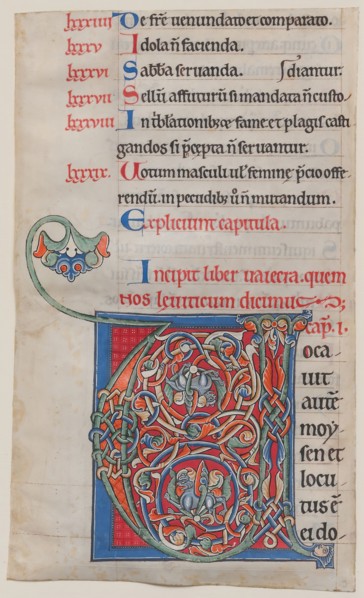 lxxxiiii De fr̄e uenundato et comparato.
lxxxv Idola ñ facienda.
lxxxvi Sabb̄a seruanda. ſdiantur.
lxxxvii Sellū affuturū si mandata ñ custo
lxxxviii In t̄blationibꝫ fame et plagis casti
gandos si p̄cepta ñ seruantur.
lxxxix. Uotum masculi ul' femine p̄cio offe
rendū. in pecudibꝫ ū ñ mutandum.
Expliciunt capitula.
Incipit liber uaiecra. quem
nos leuiticum dicimus;
cap̄. i.
Uoca
uit
autē
moy
sen et
locu
tus ē
ei do